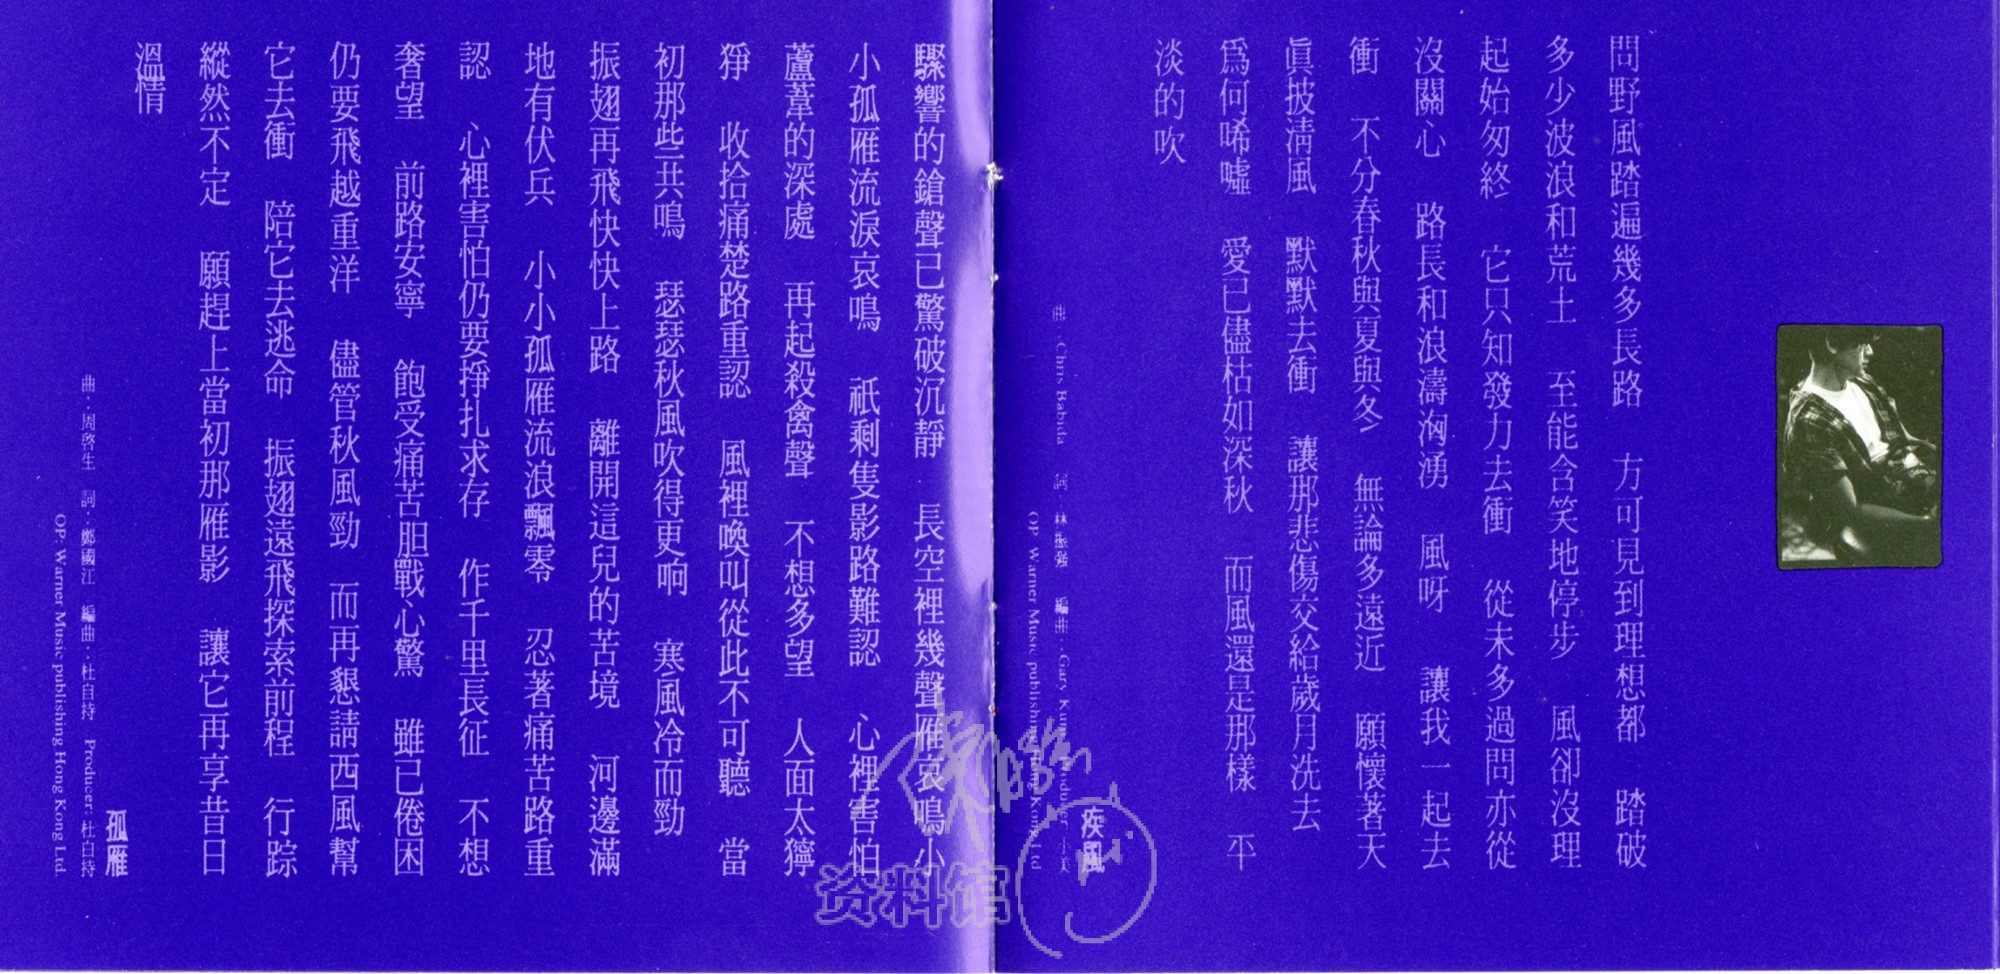 問野風踏遍幾多長路　方可見到理想都　踏破
多少波浪和荒土　至能含笑地停步　風卻沒理
起始匆終　它只知發力去衝　從未多過問亦從
沒關心　路長和浪濤洶湧　風呀　讓我一起去
衝　不分春秋與夏與冬　無論多遠近　願懷著天
眞披淸風　默默去衝　讓那悲傷交給歲月洗去
爲何唏噓　愛已儘枯如深秋　而風還是那樣　平
淡的吹
疾風
曲：Chris Babida　詞：林振强　編曲：Gary 小美
OP: Warner Music publishing Hong Kong Ltd
驟響的鎗聲已驚破沉靜　長空裡幾聲雁哀鳴小
小孤雁流淚哀鳴　祇剩隻影路難認　心裡害怕
蘆葦的深處　再起殺禽聲　不想多望　人面太獰
猙　收拾痛楚路重認　風裡喚叫從此不可聽　當
初那些共鳴　瑟瑟秋風吹得更响　寒風冷而勁
振翅再飛快快上路　離開這兒的苦境　河邊滿
地有伏兵　小小孤雁流浪飄零　忍著痛苦路重
認　心裡害怕仍要掙扎求存　作千里長征　不想
奢望　前路安寧　飽受痛苦胆戰心驚　雖已倦困
仍要飛越重洋　儘管秋風勁　而再懇請西風幫
它去衝　陪它去逃命　振翅遠飛探索前程　行踪
縱然不定　願趕上當初那雁影　讓它再享昔日
溫情
孤雁
曲：周啓生　詞：鄭國江　編曲：杜自持　Producer: 杜自持
OP: Warner Music publishing Hong Kong Ltd.
资料馆